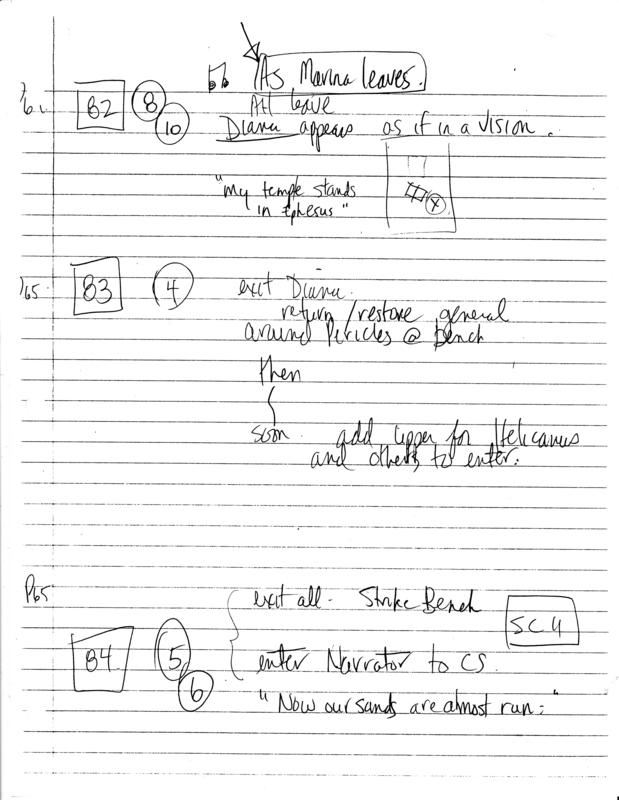 As Marina leaves.
82 8 All leave
10 Diana appears as if in a vision.
"My temple stands
in Ephesus"
83 4 exit Diana.
return/restore general
around Pericles @ Bench
then
soon add upper for Helicanus
and others to enter.
P65 exit all - Strike Bench
SC 4
84 5 enter Narrator to CS.
6 "Now our sands are almost run:"